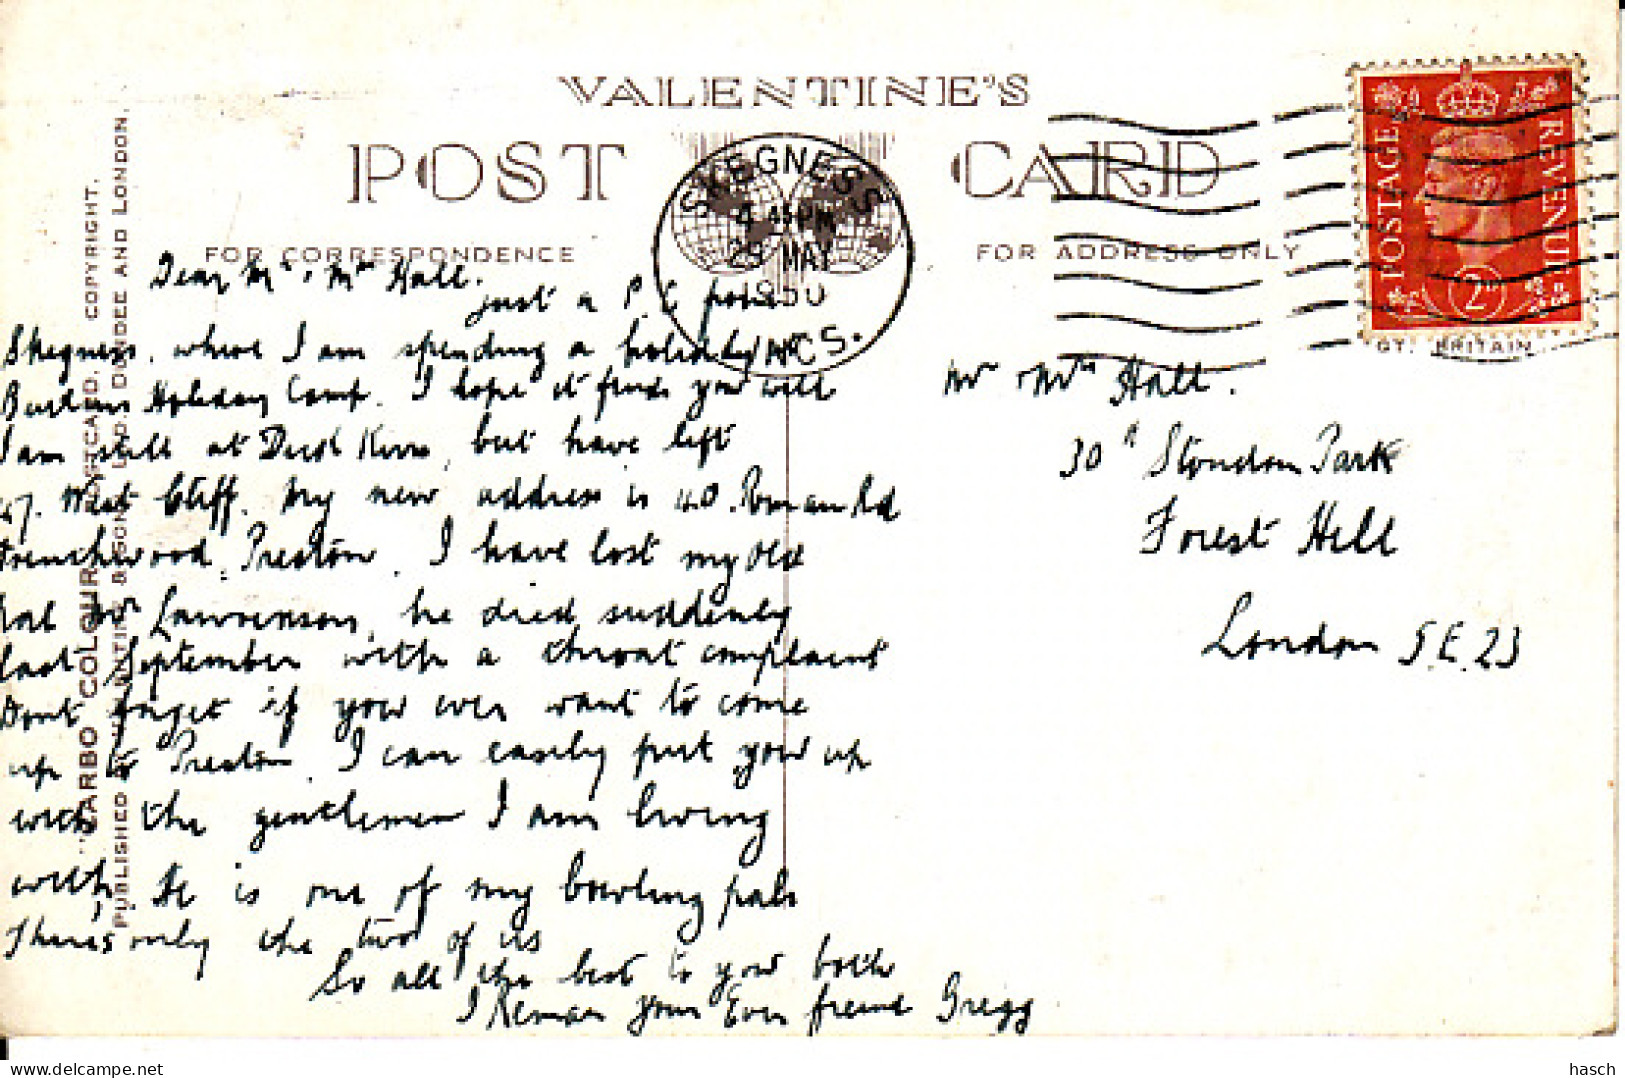 VALENTINE'S
POST CARD
FOR CORRESPONDENCE
FOR ADDRESS ONLY
SKEGNESS
4 45 PM
29 MAY
1950
LINCS.
POSTAGE REVENUE
2D
GT. BRITAIN
"CARBO COLOUR" POSTCARD. COPYRIGHT.
PUBLISHED BY VALENTINE & SONS, LTD. DUNDEE AND LONDON.
Dear Mr & Mrs Hall.
just a P.C from
Skegness, where I am spending a holiday at
Butlins Holiday Camp. I hope it finds you well
I am still at Dick Kerrs, but have left
47. West Cliff. My new address is 40. Roman Rd
Frenchwood, Preston. I have lost my old
pal Mr Lawrenson, he died suddenly
last September with a throat complaint
Dont forget if you ever want to come
up to Preston, I can easily put you up
with the gentleman I am living
with, He is one of my bowling pals
There's only the two of us
So all the best to you both
I Remain your Ever friend Gregg
Mr & Mrs Hall.
30A Stondon Park
Forest Hill
London S.E.23
hasch